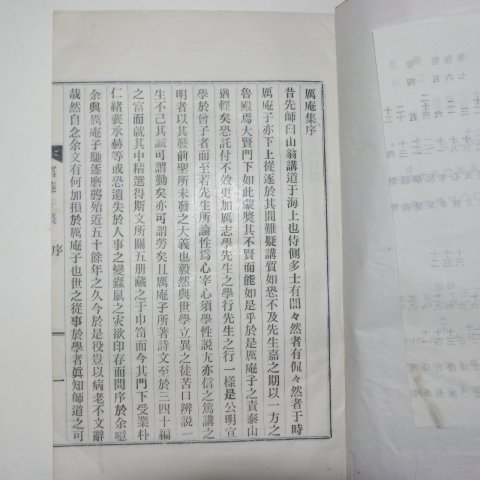 厲庵集序
昔先師臼山翁講道于海上也侍側多士有誾々然者有侃々然者于時
厲庵子亦下上從逐於其間難疑講質如恐不及先生嘉之期以一方之
魯殿焉大賢門下如此蒙奬其不賢而能如是乎於是厲庵子之責泰山
猶輕矣恐託付不效更加厲志學先生之學行先生之行一樣是公明宣
學於曾子者而至若先生所論性爲心宰心須學性說尤亦信之篤講之
明者以其發前聖所未發之大義也毅然與世學立異之徒苦口辨說一
生不已其誠可謂勤矣亦可謂勞矣且厲庵子所著詩文至於三四十編
之富而就其中精選得斯文所關五册藏之于巾笥而今其門下受業朴
仁緖裵承赫等或恐遺失於人事之變蠧鼠之灾欲印存而問序於余噫
余與厲庵子馳逐磨礱殆近五十餘年之久今於是役豈以病老不文辭
哉然自念余文有何加損於厲庵子也世之從事於學者眞知師道之可
序
一